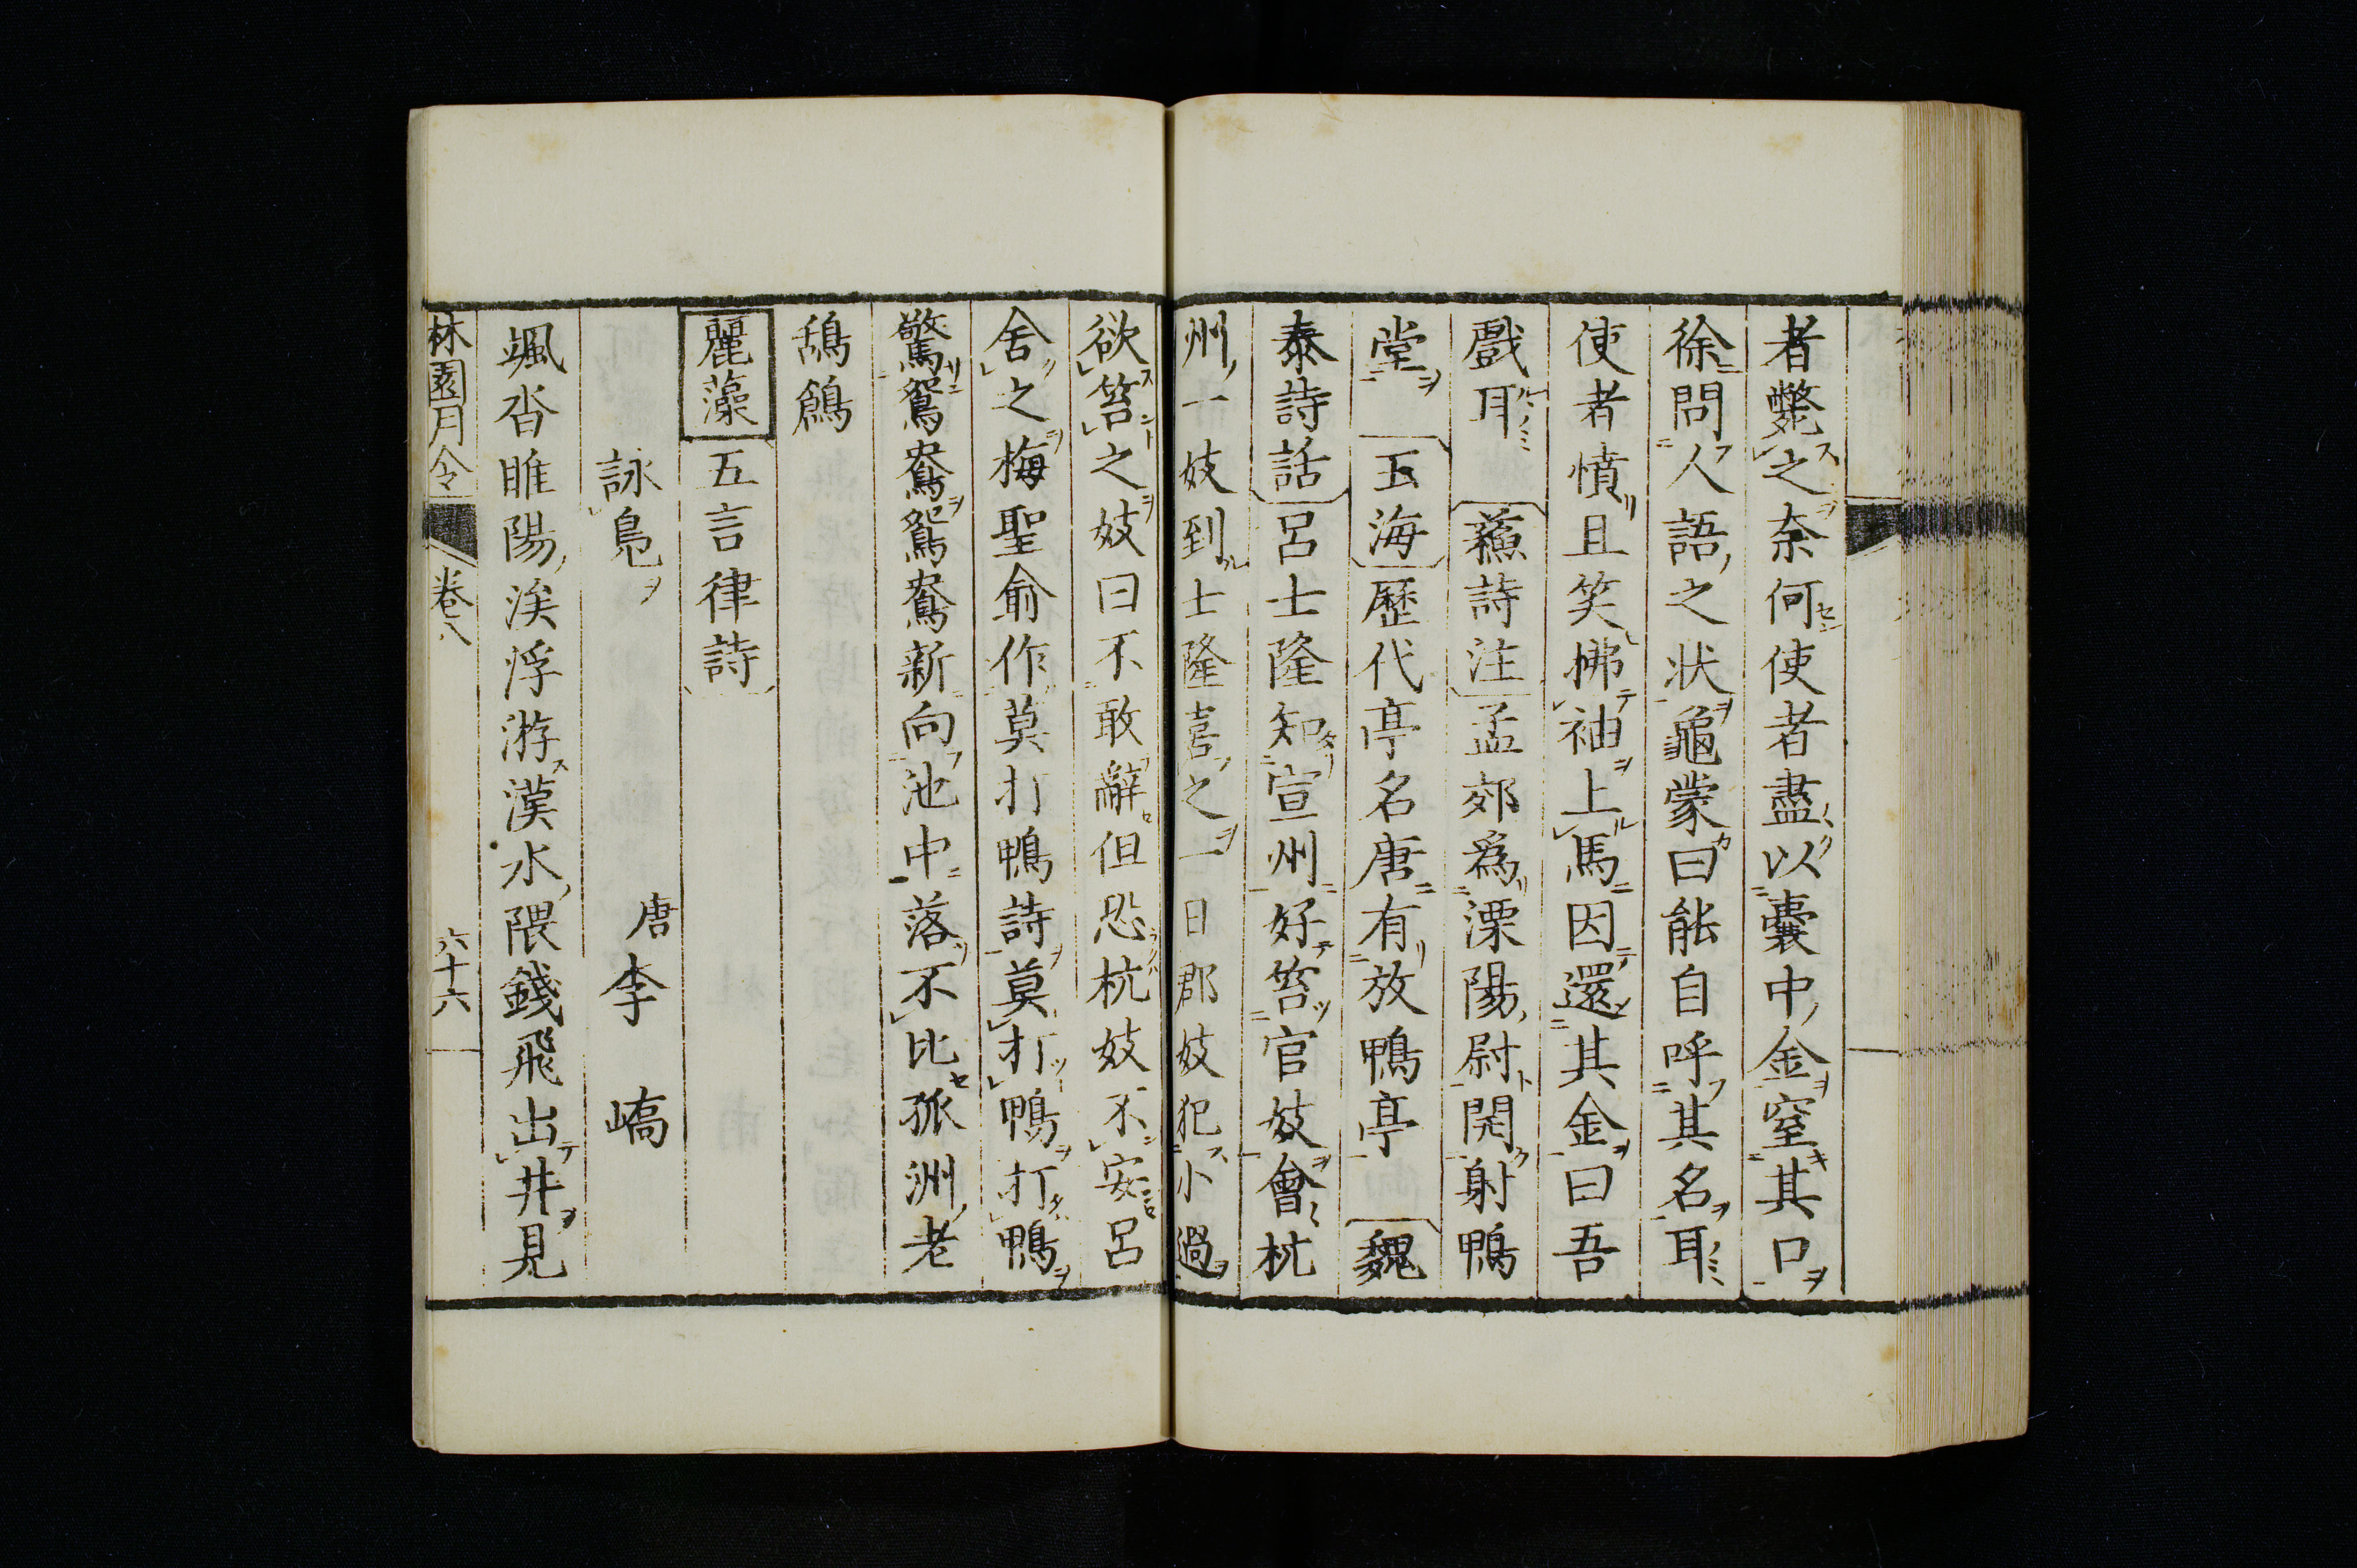 者斃之奈何使者盡以囊中金窒其口
徐問人語之狀龜蒙曰能自呼其名耳
使者憤且笑拂袖上馬因還其金曰吾
戲耳 蘇詩注 孟郊爲溧陽尉開射鴨
堂 玉海 歷代亭名唐有放鴨亭 魏
泰詩話 呂士隆知宣州好笞官妓會杭
州一妓到士隆喜之一日郡妓犯小過
欲笞之妓曰不敢辭但恐杭妓不安呂
舍之梅聖俞作莫打鴨詩莫打鴨打鴨
驚鴛鴦鴛鴦新向池中落不比孤洲老
鴰鶬
麗藻 五言律詩
詠鳧 唐 李 嶠
颯沓睢陽涘浮游漢水隈錢飛出井見
林園月令 卷八 六十六